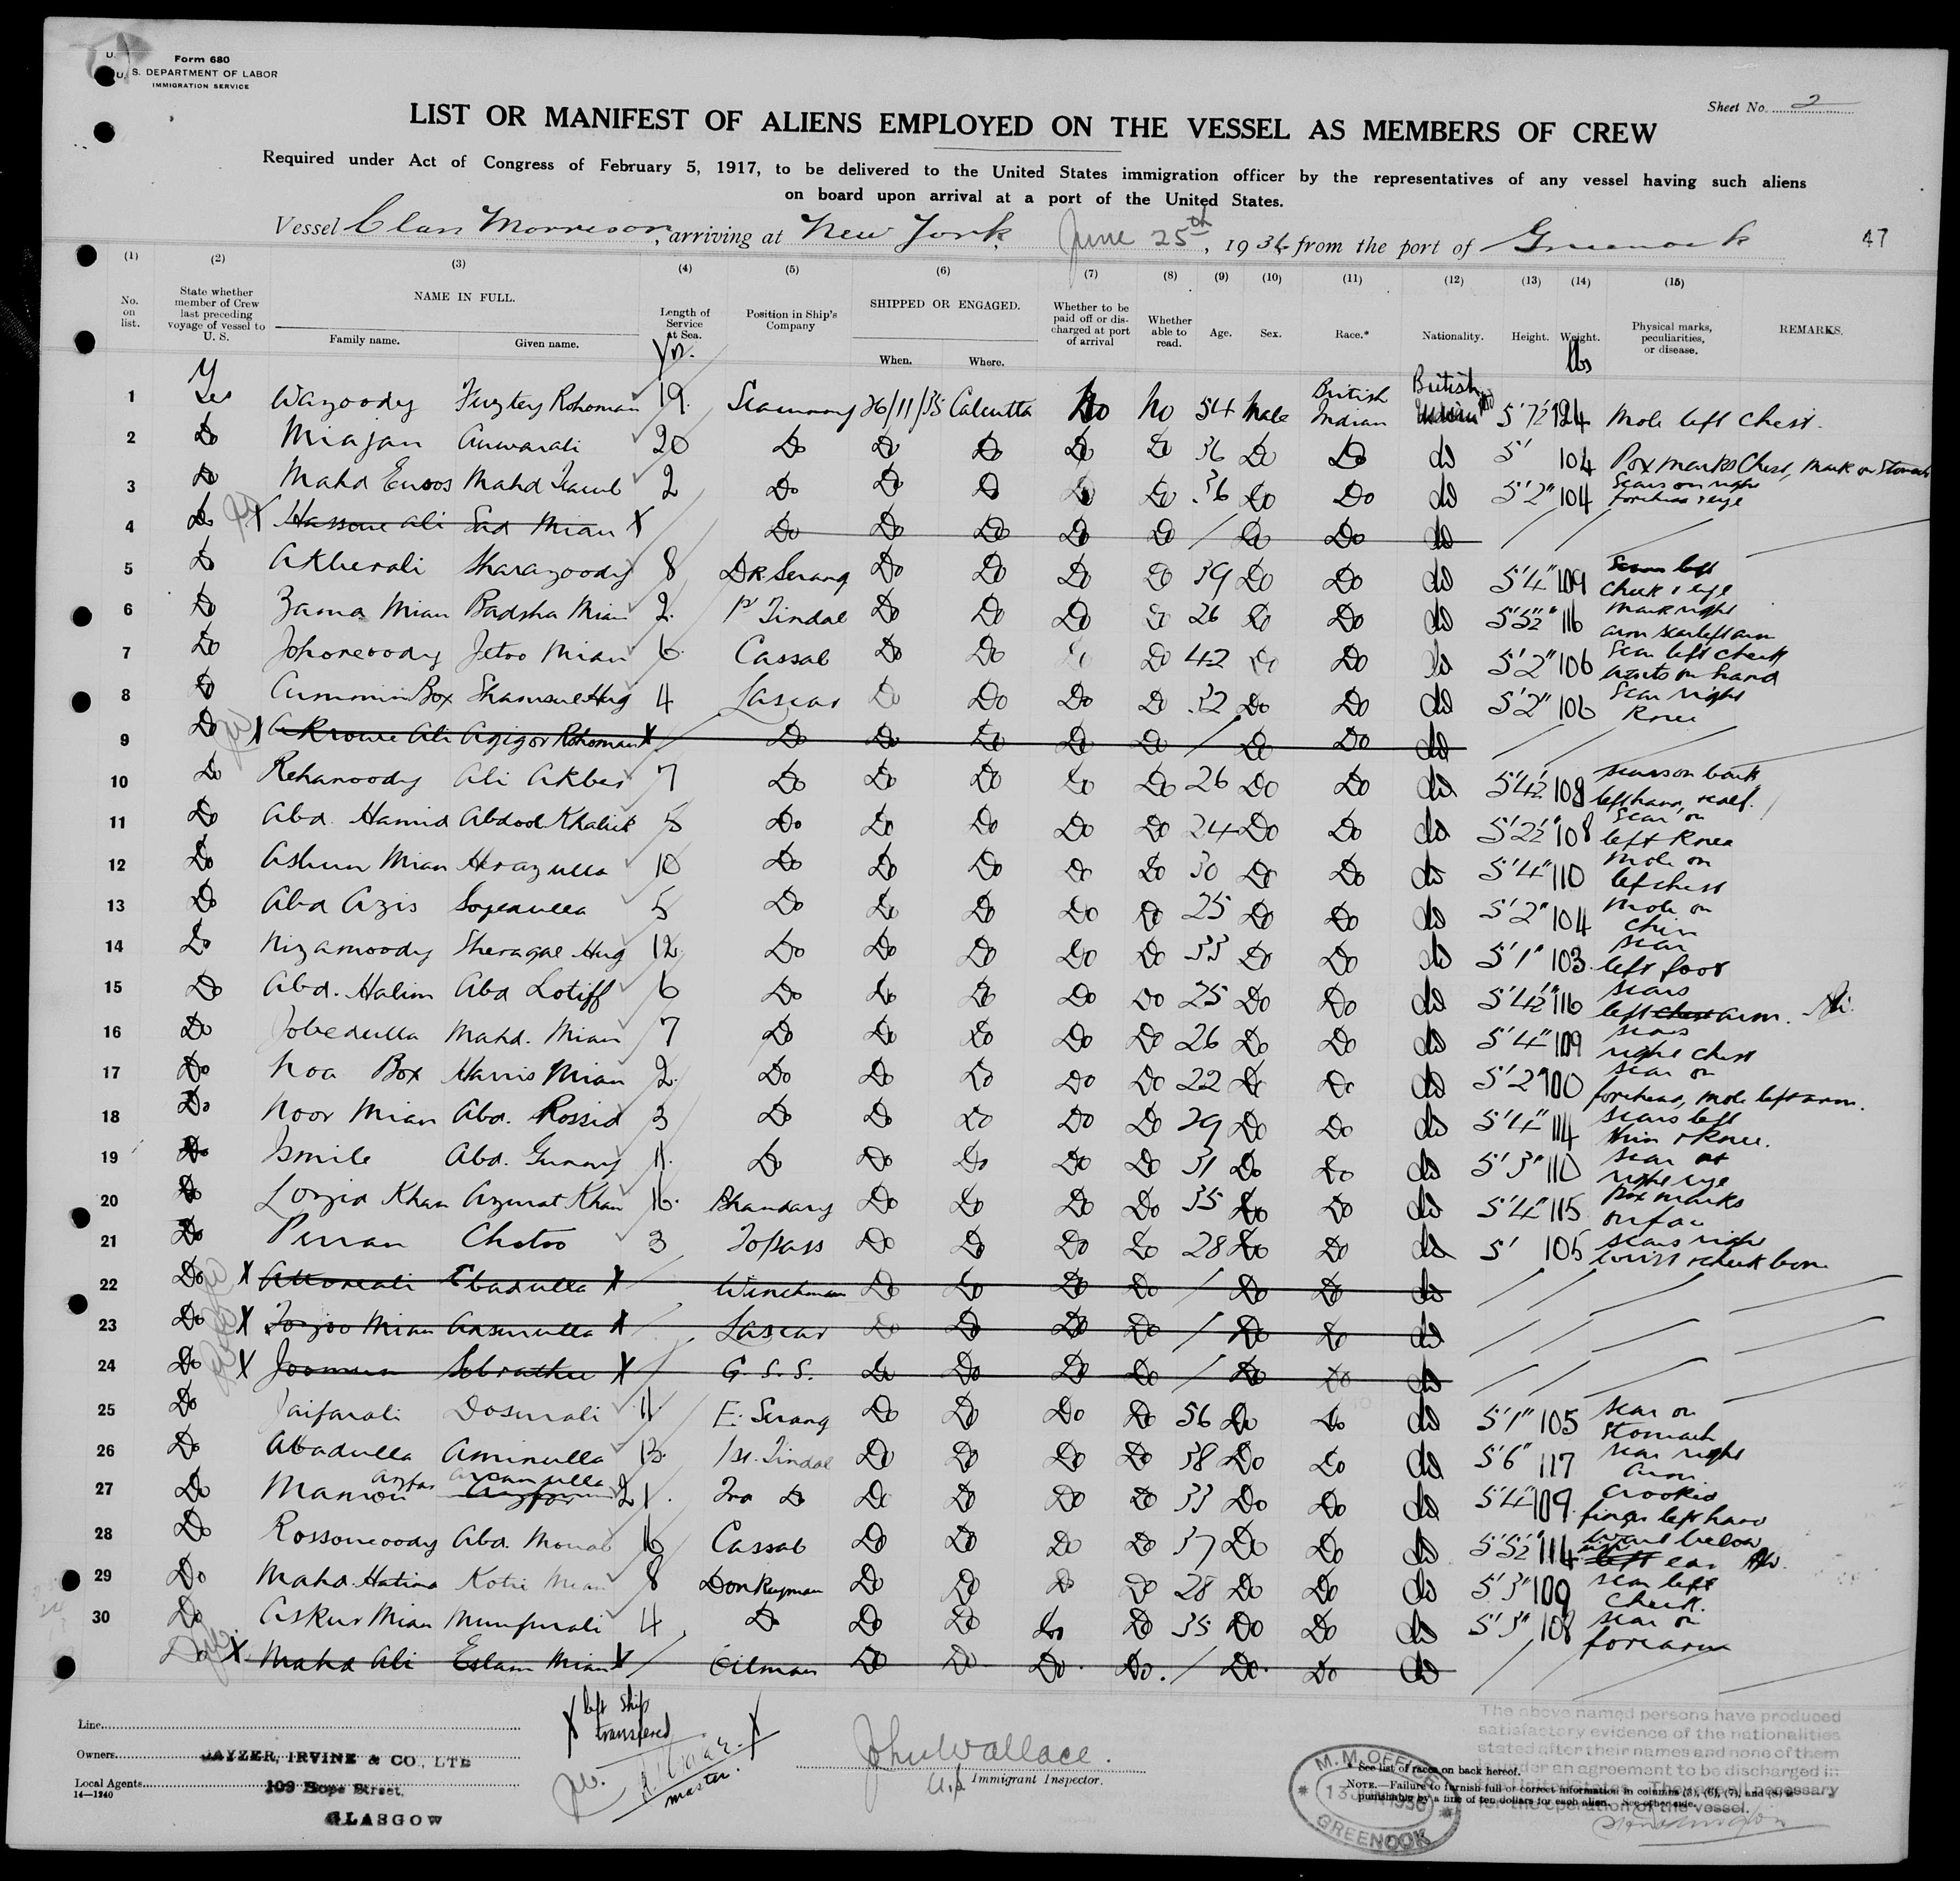 Form 680
U. S. DEPARTMENT OF LABOR
IMMIGRATION SERVICE
Sheet No. 2
LIST OR MANIFEST OF ALIENS EMPLOYED ON THE VESSEL AS MEMBERS OF CREW
Required under Act of Congress of February 5, 1917, to be delivered to the United States immigration officer by the representatives of any vessel having such aliens
on board upon arrival at a port of the United States.
Vessel Clan Morrison, arriving at New York, June 25th, 1936 from the port of Greenock
47
(1) (2) (3) (4) (5) (6) (7) (8) (9) (10) (11) (12) (13) (14) (15)
No. on list. State whether member of Crew last preceding voyage of vessel to U. S. NAME IN FULL. Family name. Given name. Length of Service at Sea. Position in Ship's Company SHIPPED OR ENGAGED. When. Where. Whether to be paid off or discharged at port of arrival Whether able to read. Age. Sex. Race.* Nationality. Height. Weight. Physical marks, peculiarities, or disease. REMARKS.
Yr. lbs
1 Yes Wazoody Rohoman 19 26/11/35 Calcutta No No 54 Male British Indian British 5'7½" 124 Mole left Chest.
2 Do Miajan Anwarali 20 Do Do Do Do Do 36 Do Do do 5' 104 Pox marks Chest, mark on Stomach
3 Do Mahd Mahd 2 Do Do Do Do Do 36 Do Do do 5'2" 104 Scars on right forehead & eye
4 Do X Hassone Ali Sad Mian X Do Do Do Do Do Do Do do
5 Do Akberali Sharazoody 8 Dk. Serang Do Do Do Do 39 Do Do do 5'4" 109 left cheek & eye
6 Do Zama Mian Badsha Mian 2 1st Tindal Do Do Do Do 26 Do Do do 5'5½" 116 mark right arm scar left arm
7 Do Johoreoody Jetoo Mian 6 Cassab Do Do Do 42 Do Do do 5'2" 106 Scar left cheek warts on hand
8 Do Box 4 Lascar Do Do Do Do 32 Do Do do 5'2" 106 Scar right Knee
9 Do X Ali Azizor Rohoman X Do Do Do Do Do Do Do do
10 Do Rehanoody Ali Akber 7 Do Do Do Do Do 26 Do Do do 5'4½" 108 scars on back left hand
11 Do Abd. Hamid Abdool Khalick 5 Do Do Do Do Do 24 Do Do do 5'2½" 108 Scar on left Knee
12 Do Mian 10 Do Do Do Do Do 30 Do Do do 5'4" 110 Mole on left chest
13 Do Abd Azis 5 Do Do Do Do Do 25 Do Do do 5'2" 104 Mole on chin
14 Do Nizamoody Huq 12 Do Do Do Do Do 33 Do Do do 5'1" 103 scar left foot
15 Do Abd. Halim Abd Lotiff 6 Do Do Do Do Do 25 Do Do do 5'4½" 116 scars left chest arm.
16 Do Jobedulla Mahd. Mian 7 Do Do Do Do Do 26 Do Do do 5'4" 109 scars right chest
17 Do Noa Box Harris Mian 2 Do Do Do Do Do 22 Do Do do 5'2" 100 scar on forehead, mole left arm.
18 Do Noor Mian Abd. Rossid 3 Do Do Do Do Do 29 Do Do do 5'4" 114 scars left shin & Knee.
19 Do Ismile Abd. Gunny 11 Do Do Do Do Do 31 Do Do do 5'3" 110 scar at right eye
20 Do Khan Azmat Khan 16 Bhandary Do Do Do Do 35 Do Do do 5'4" 115 Pox marks on face
21 Do Perran Chotoo 3 Topass Do Do Do Do 28 Do Do do 5' 105 scars right wrist & cheek bone
22 Do X Ebadulla X Winchman Do Do Do Do Do Do do
23 Do X Mian X Lascar Do Do Do Do Do Do do
24 Do X X G. S. S. Do Do Do Do Do Do do
25 Do Jaifarali Doserali 11 E. Serang Do Do Do Do 56 Do Do do 5'1" 105 scar on stomach
26 Do Abadulla Aminulla 13 1st. Tindal Do Do Do Do 38 Do Do do 5'6" 117 scar right arm.
27 Do 21 Do Do Do Do Do 33 Do Do do 5'4" 109 Crooked finger left hand
28 Do Rossoneoody Abd. 16 Cassab Do Do Do Do 37 Do Do do 5'5½" 114 below left ear
29 Do Mahd. Hatim Mian 8 Donkeyman Do Do Do Do 28 Do Do do 5'3" 109 scar left cheek.
30 Do Askur Mian Munfurali 4 Do Do Do Do Do 35 Do Do do 5'3" 108 scar on forearm
Do X Mahd Ali Eslam Mian X Oilman Do Do Do Do. Do Do do
X left ship transfered X
master.
Line
Owners CAYZER, IRVINE & CO., LTD
Local Agents 109 Hope Street,
GLASGOW
14—1240
John Wallace.
Immigrant Inspector.
The above named persons have produced
satisfactory evidence of the nationalities
stated after their names and none of them
under an agreement to be discharged in
the United States. They are all necessary
for the operation of the vessel.
* See list of races on back hereof.
NOTE.—Failure to furnish full or correct information in columns (3), (6), (7), and (8) is
punishable by a fine of ten dollars for each alien. See other side.
M. M. OFFICE
13 JUN 1936
GREENOCK